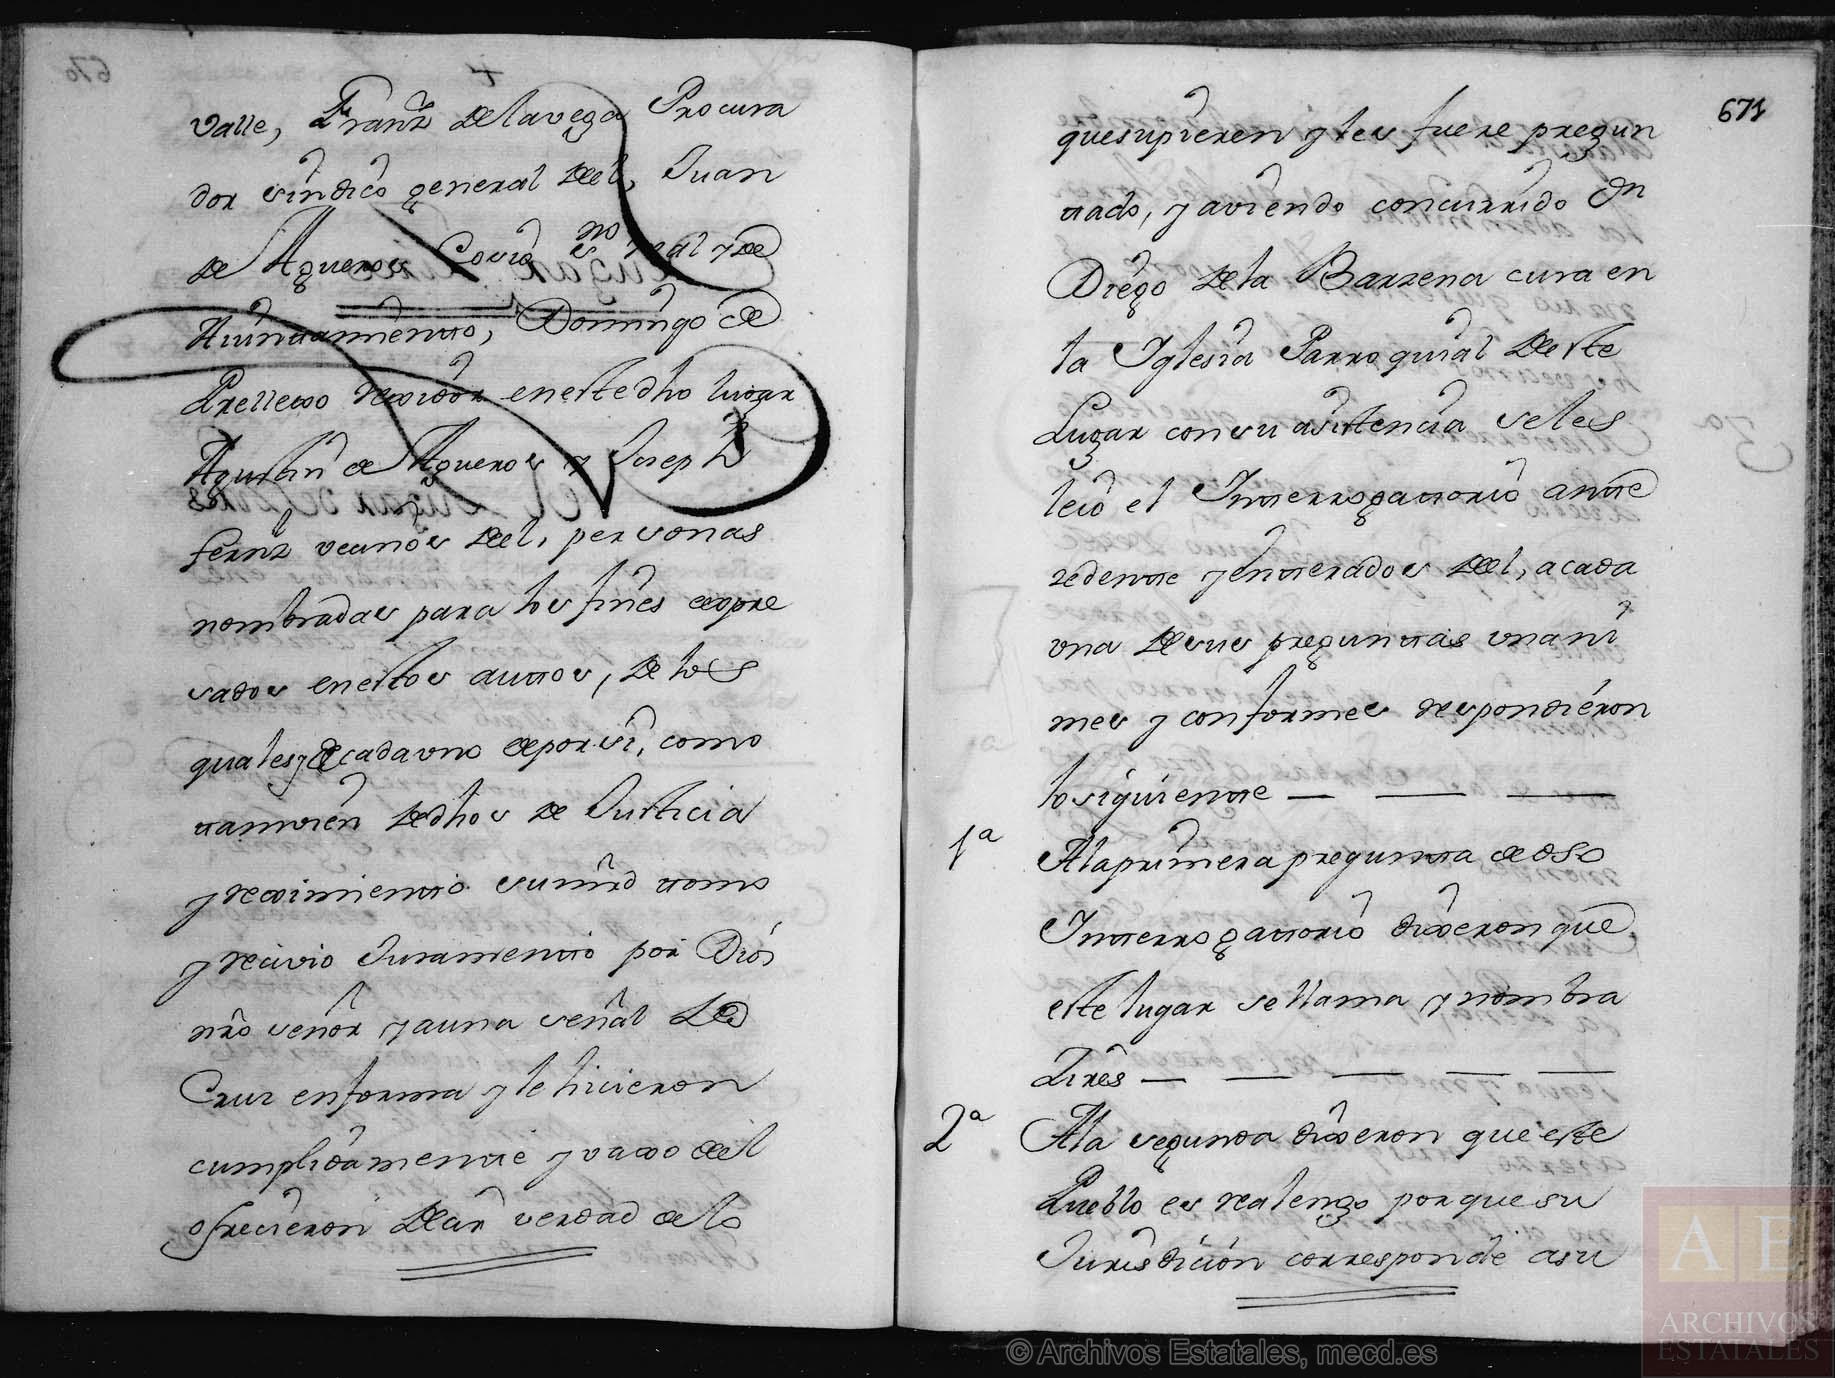 valle, Franz de la vega Procura
dor sindico general del, Juan
de Agueros Cosio esno real y de
Aiuntamiento, Domingo de
Prellezo rexidor en este dho lugar
Agustin de Agueros y Joseph
fernz vecinos del, personas
nombradas para los fines expre
sados en estos auttos, de los
quales y de cada uno de por si, como
tamvien de dhos de Justicia
y reximiento su mrd tomo
y recivio Juramento por Dios
nro señor y a una señal de
Cruz en forma y le hicieron
cumplidamente y vaxo del
ofrecieron decir verdad de lo
671
que supieren y les fuere pregun
tado, y aviendo concurrido Dn
Diego de la Barzena cura en
la Iglesia Parroquial deste
Lugar con su asistencia se les
leio el Interrogatorio ante
zedente y enterados del, a cada
una de sus preguntas unani
mes y conformes respondieron
lo siguiente — — —
1a A la primera pregunta de dho
Interrogatorio dixeron que
este lugar se llama y nombra
Lires — — — — —
2a A la segunda dixeron que este
Pueblo es realengo porque su
Jurisdicion corresponde a su
AE
ARCHIVOS
ESTATALES
© Archivos Estatales, mecd.es